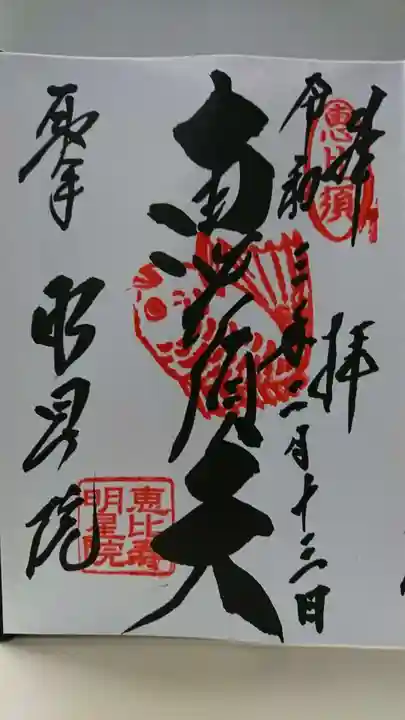 奉拝
恵比須
令和三年二月十三日
恵比須天
恵比寿
明星院
聖 明星院